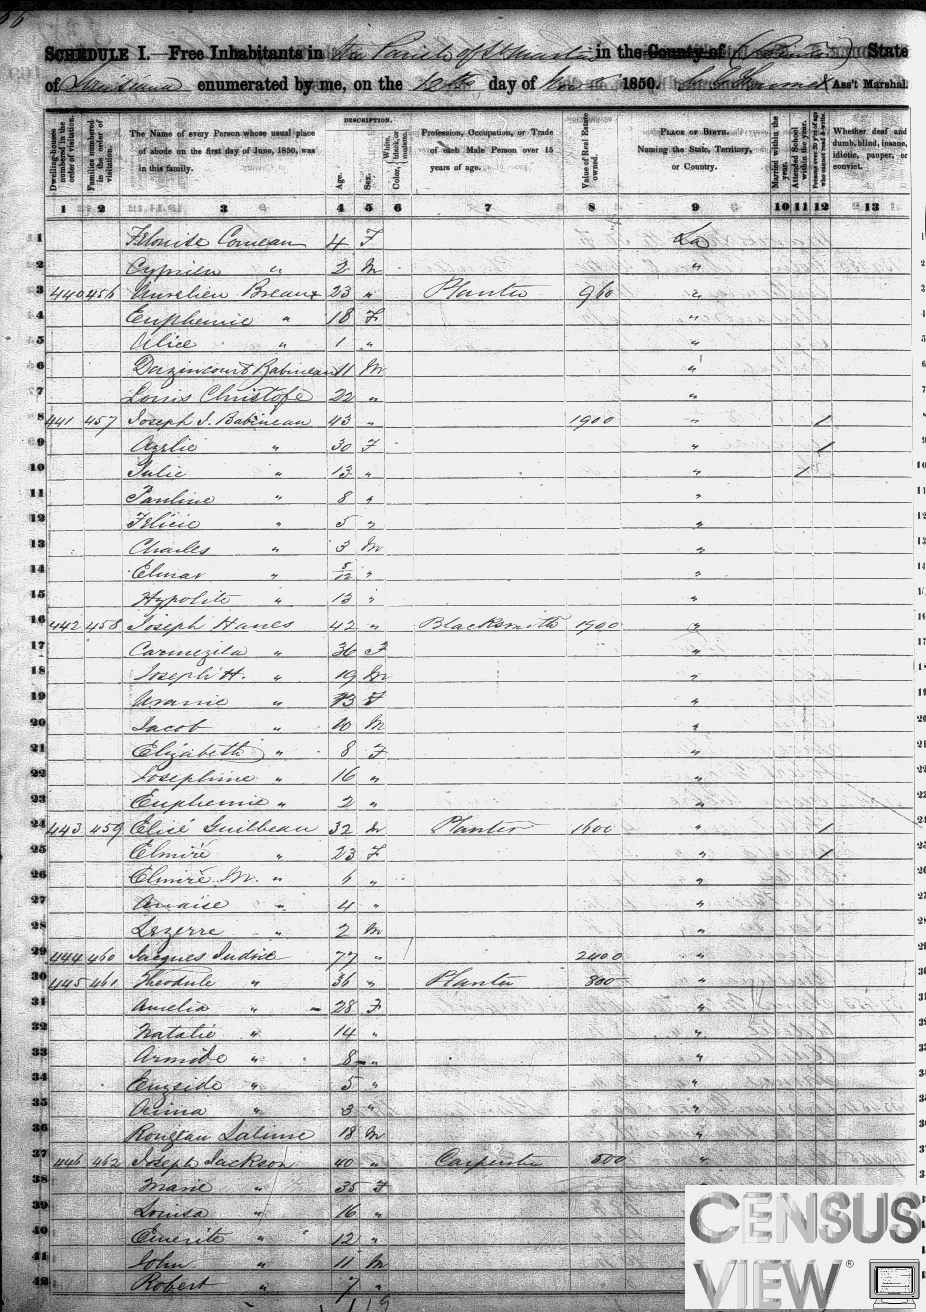 SCHEDULE I.—Free Inhabitants in The Parish of St Martin in the County of State
of Louisiana enumerated by me, on the day of Nov 1850. Ass't Marshal.
DESCRIPTION.
Dwelling-houses numbered in the order of visitation.
Families numbered in the order of visitation.
The Name of every Person whose usual place of abode on the first day of June, 1850, was in this family.
Age.
Sex.
Color, White, black, or mulatto.
Profession, Occupation, or Trade of each Male Person over 15 years of age.
Value of Real Estate owned.
PLACE OF BIRTH. Naming the State, Territory, or Country.
Married within the year.
Attended School within the year.
Persons over 20 y'rs of age who cannot read & write.
Whether deaf and dumb, blind, insane, idiotic, pauper, or convict.
1 2 3 4 5 6 7 8 9 10 11 12 13
1 Comeau 4 F La
2 Cyprien " 2 M "
3 440 456 Aurelien Breaux 23 " Planter 960 "
4 Euphemie " 18 F "
5 Alice " 1 " "
6 Dazincourt Babineau 11 M "
7 Louis Christofe 22 " "
8 441 457 Joseph I. Babineau 43 " 1900 " 1
9 Azelie " 30 F " 1
10 Julie " 13 " " 1
11 Pauline " 8 " "
12 Felicie " 5 " "
13 Charles " 3 M "
14 Elmar " 8/12 " "
15 Hypolite " 13 " "
16 442 458 Joseph Hanes 42 " Blacksmith 1900 "
17 Carmezita " 36 F "
18 Joseph H. " 19 M "
19 Uranie " 13 F "
20 Jacob " 10 M "
21 Elizabeth " 8 F "
22 Josephine " 16 " "
23 Euphemie " 2 " "
24 443 459 Elisé Guilbeau 32 M Planter 1600 " 1
25 Elmiré " 23 F " 1
26 Elmiré M. " 6 " "
27 Anaise " 4 " "
28 Lezerre " 2 M "
29 444 460 Jacques Judice 77 " 2400 "
30 445 461 Theodule " 36 " Planter 800 "
31 Amelia " 28 F "
32 Natalie " 14 " "
33 Armide " 8 " "
34 Euzside " 5 " "
35 Arima " 3 " "
36 Rougeau Latime 18 M "
37 446 462 Joseph Jackson 40 " Carpenter 500 "
38 Marie " 35 F "
39 Louisa " 16 "
40 Emerite " 12 "
41 John " 11 M
42 Robert " 7 "
CENSUS
VIEW®